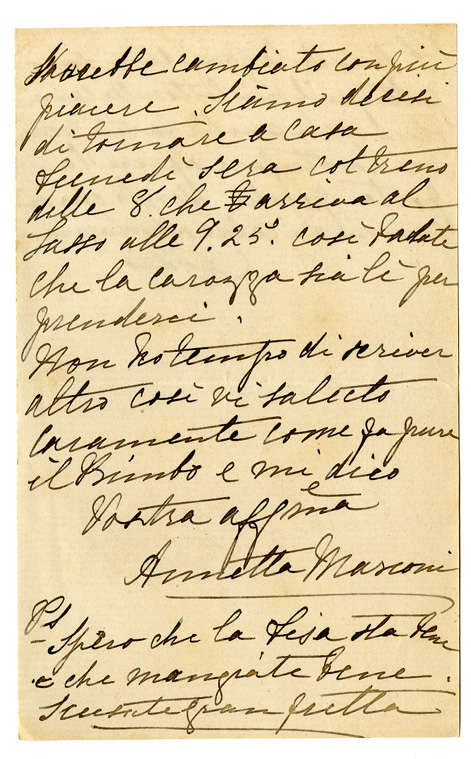 sarebbe cambiato con più
piacere. Siamo decisi
di tornare a casa
Lunedì sera col treno
delle 8. che arriva al
Sasso alle 9.25. così badate
che la carozza sia lì per
prenderci.
Non ho tempo di scriver
altro così vi saluto
caramente come fa pure
il Bimbo e mi dico
Vostra affma
Annetta Marconi
Ps
Spero che la Lisa sta bene
e che mangiate bene.
Scusate gran fretta